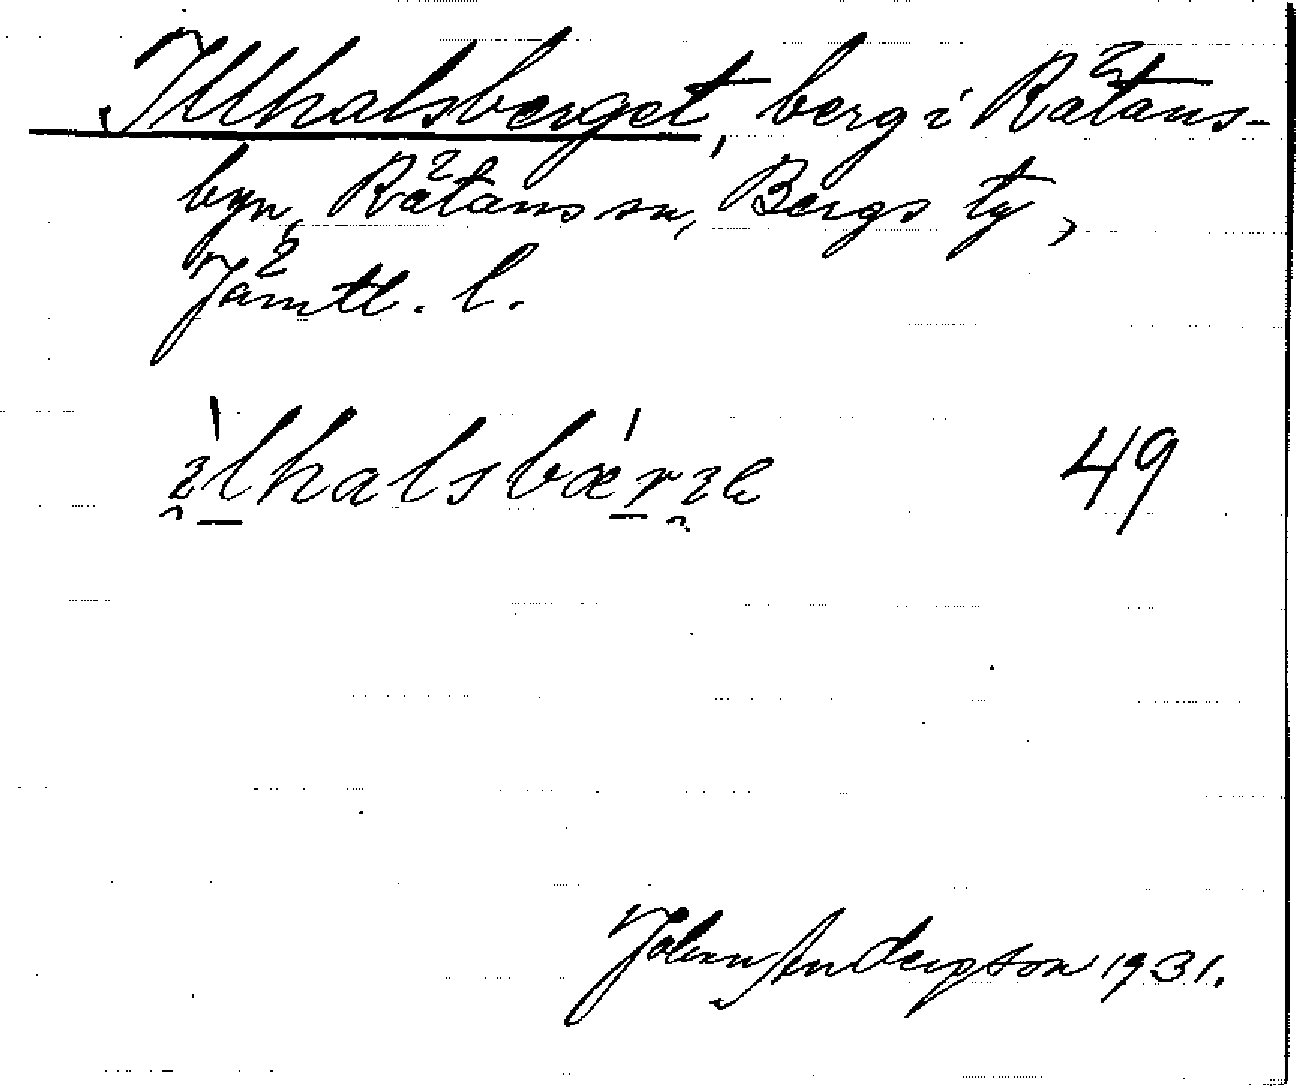 Illhalsberget, berg i Rätans-
byn, Rätans sn, Bergs tg,
Jämtl. l.
ìlhalsbǽrɪe 49
Johan Anderzson 1931.